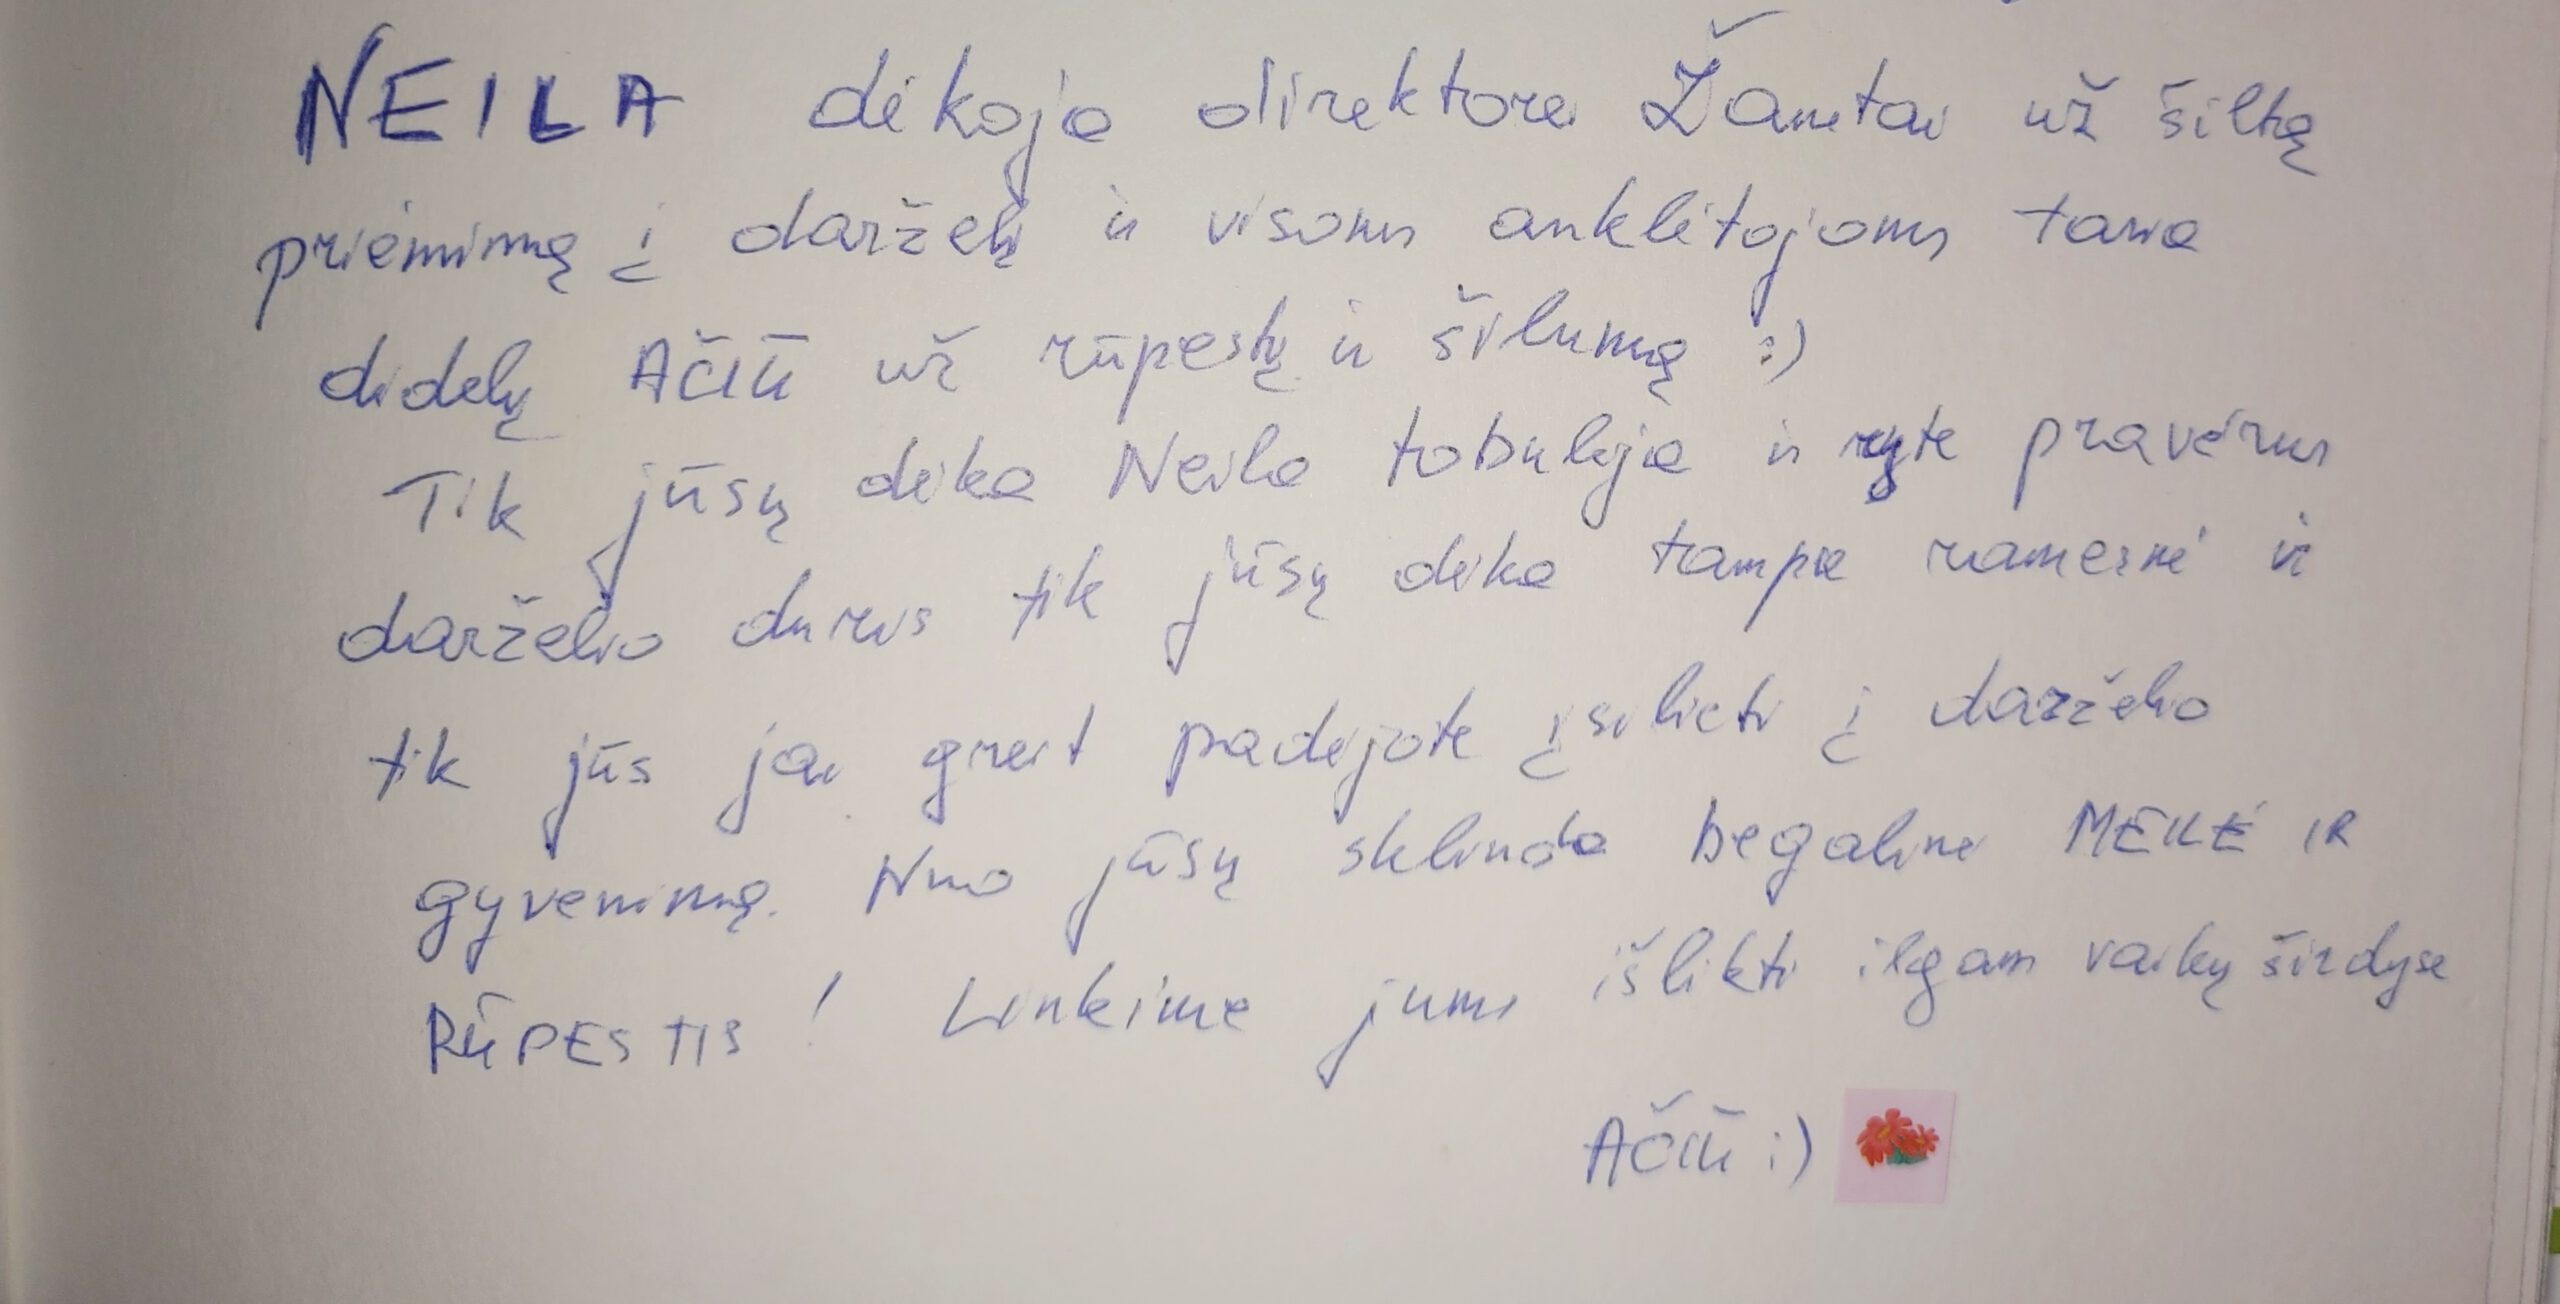 NEILA dėkoja direktorei Žanetai už šiltą
priėmimą į darželį ir visoms auklėtojoms taria
didelį AČIŪ už rūpestį ir šilumą :)
Tik jūsų dėka Neila tobulėja ir ryte pravėrus
darželio duris tik jūsų dėka tampa ramesnė ir
tik jūs jai greit padėjote įsilieti į darželio
gyvenimą. Nuo jūsų sklinda begalinė MEILĖ IR
RŪPESTIS! Linkime jums išlikti ilgam vaikų širdyse
AČIŪ :)